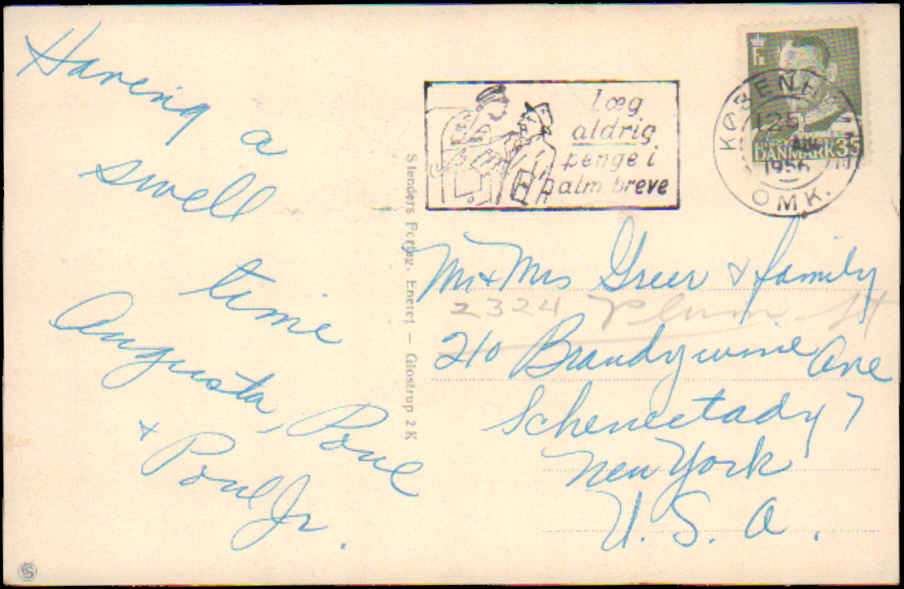 Having
a
swell
time
Augusta, Poul
+ Poul Jr.
Slenders Forlag, Eneret — Glostrup 2 K
Læg
aldrig
penge i
alm breve
KØBENH
1956
OMK.
DANMARK 35
Mr + Mrs Greer & family
2324 Plum St
210 Brandywine Ave
Schenectady 7
New York
U. S. A.
S